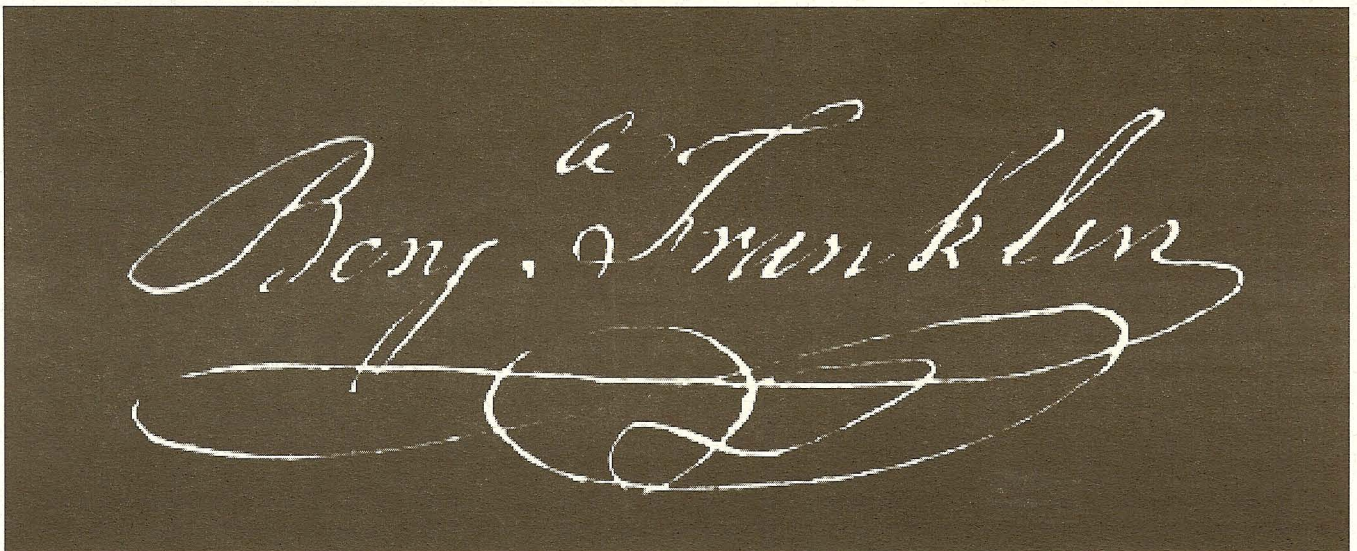 Benj. a Franklin